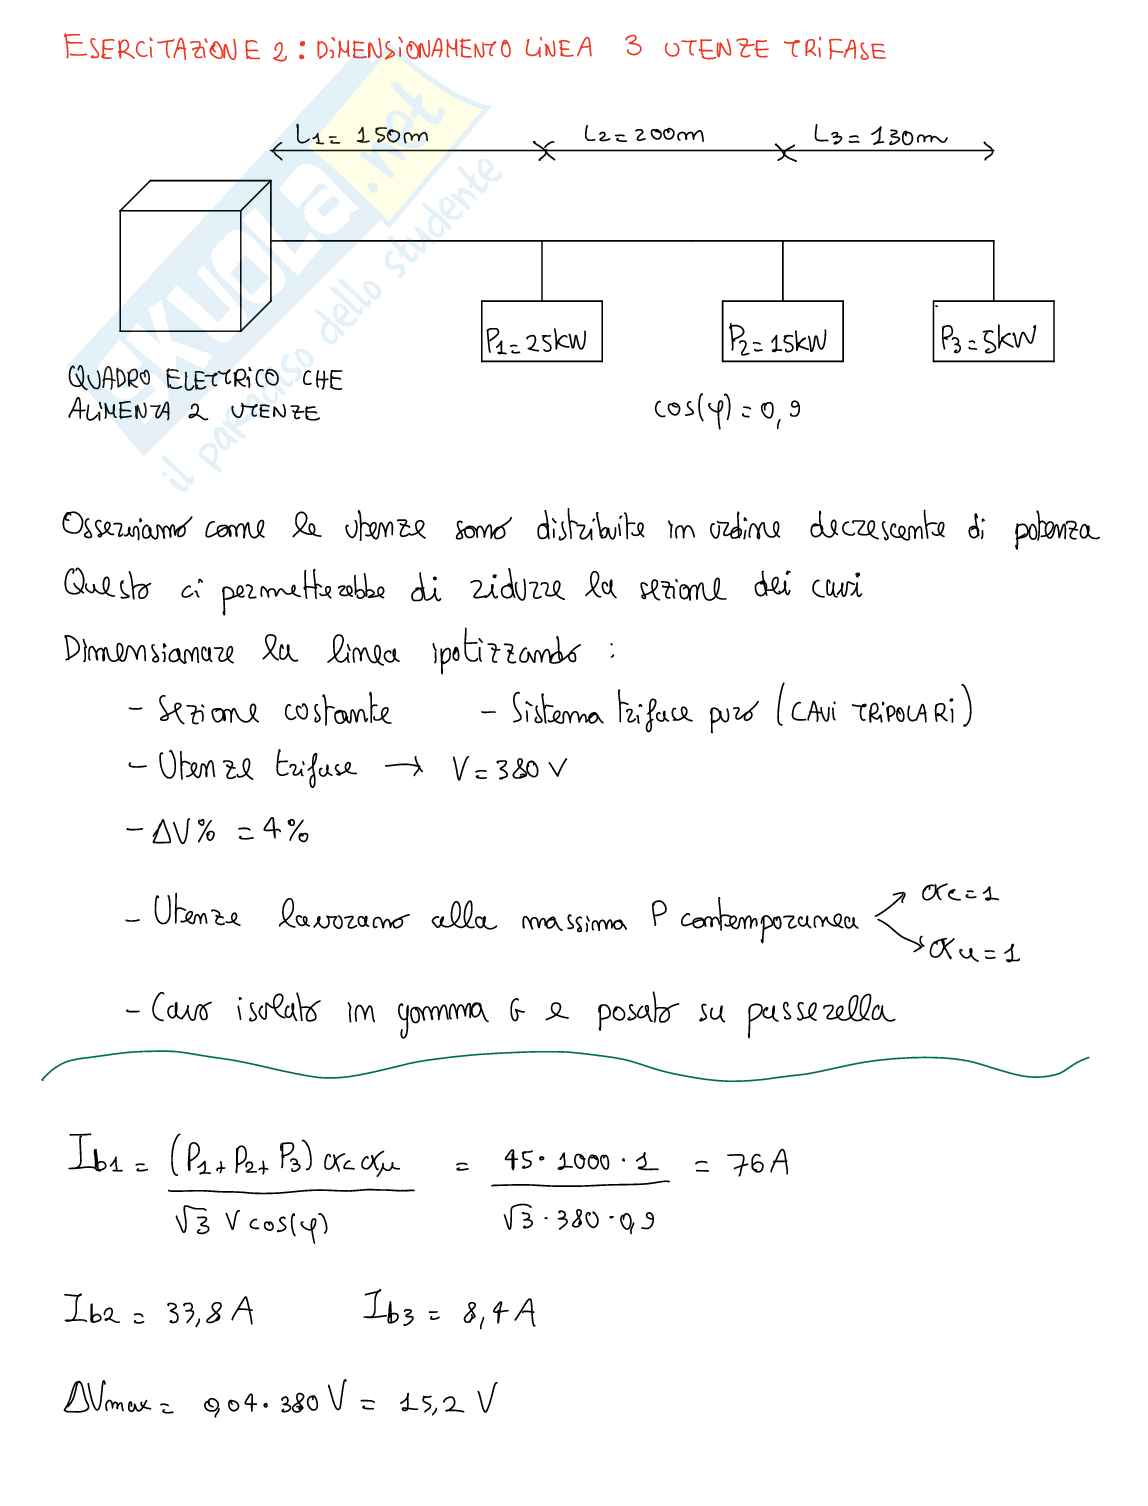 ESERCITAZIONE 2: DIMENSIONAMENTO LINEA 3 UTENZE TRIFASE
L1 = 150m L2 = 200m L3 = 130m
P1 = 25kW P2 = 15kW P3 = 5kW
QUADRO ELETTRICO CHE
ALIMENTA 2 UTENZE
cos(φ) = 0,9
SKUOLA.net
il paradiso dello studente
Osserviamo come le utenze sono distribuite in ordine decrescente di potenza
Questo ci permetterebbe di ridurre la sezione dei cavi
Dimensionare la linea ipotizzando :
- Sezione costante - Sistema trifase puro (CAVI TRIPOLARI)
- Utenze trifase → V = 380 V
- ΔV% = 4%
- Utenze lavorano alla massima P contemporanea αc = 1
αu = 1
- Cavo isolato in gomma G e posato su passerella
Ib1 = (P1 + P2 + P3) αc αu / √3 V cos(φ) = 45·1000·1 / √3·380·0,9 = 76A
Ib2 = 33,8 A Ib3 = 8,4 A
ΔVmax = 0,04·380 V = 15,2 V